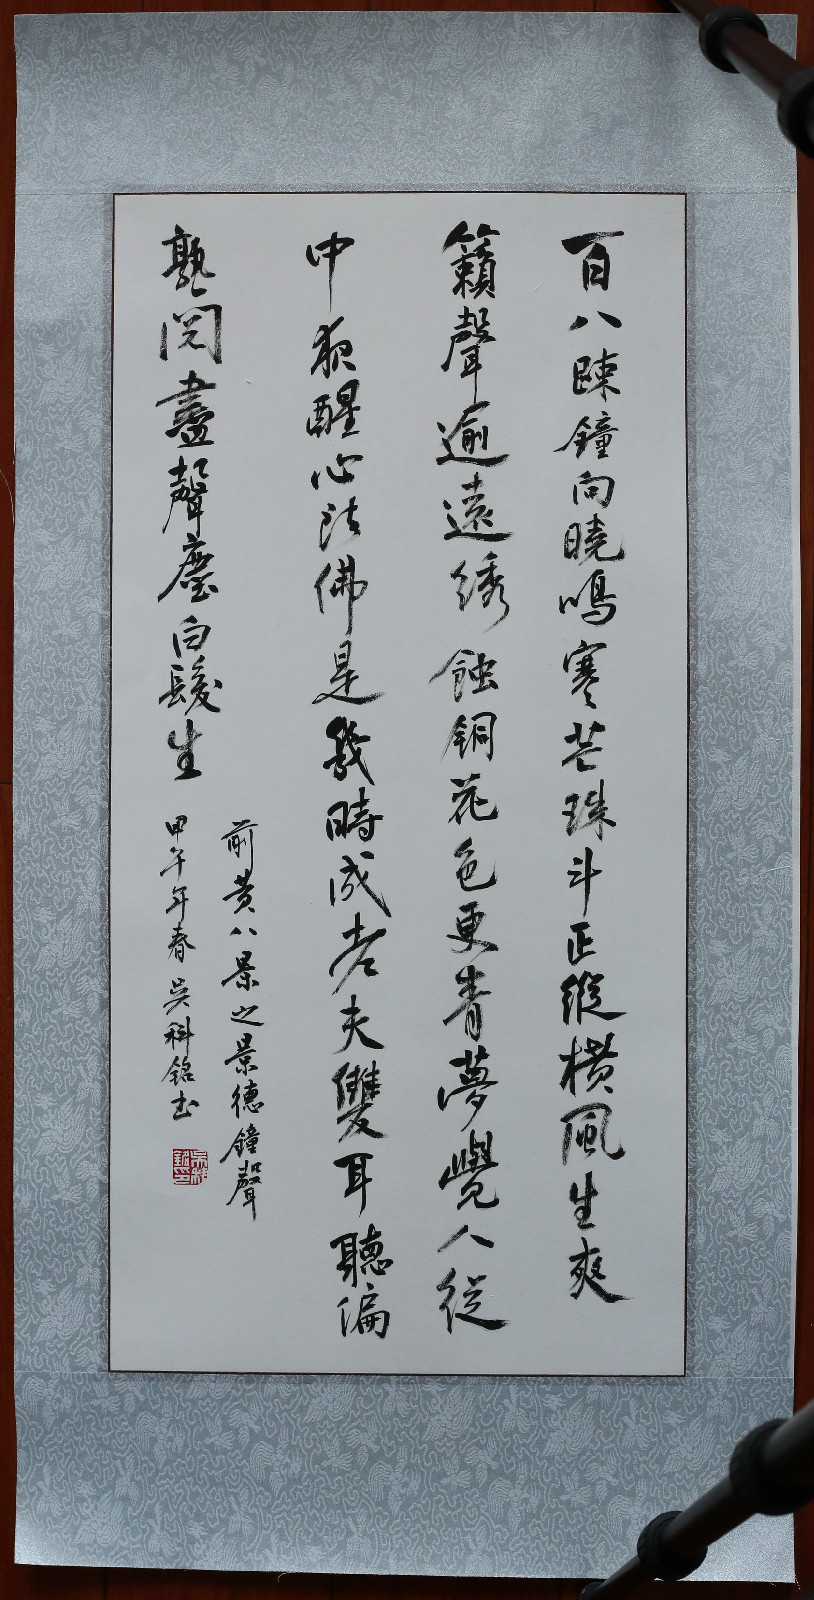 百八踈鐘向曉鳴寒芒珠斗正縱橫風生爽
籟聲逾遠綉蝕銅花色更青夢覺人從
中夜醒心法佛是幾時成老夫雙耳聽偏
熟閱盡聲塵白髮生
前黄八景之景德鐘聲
甲午年春吳科銘书